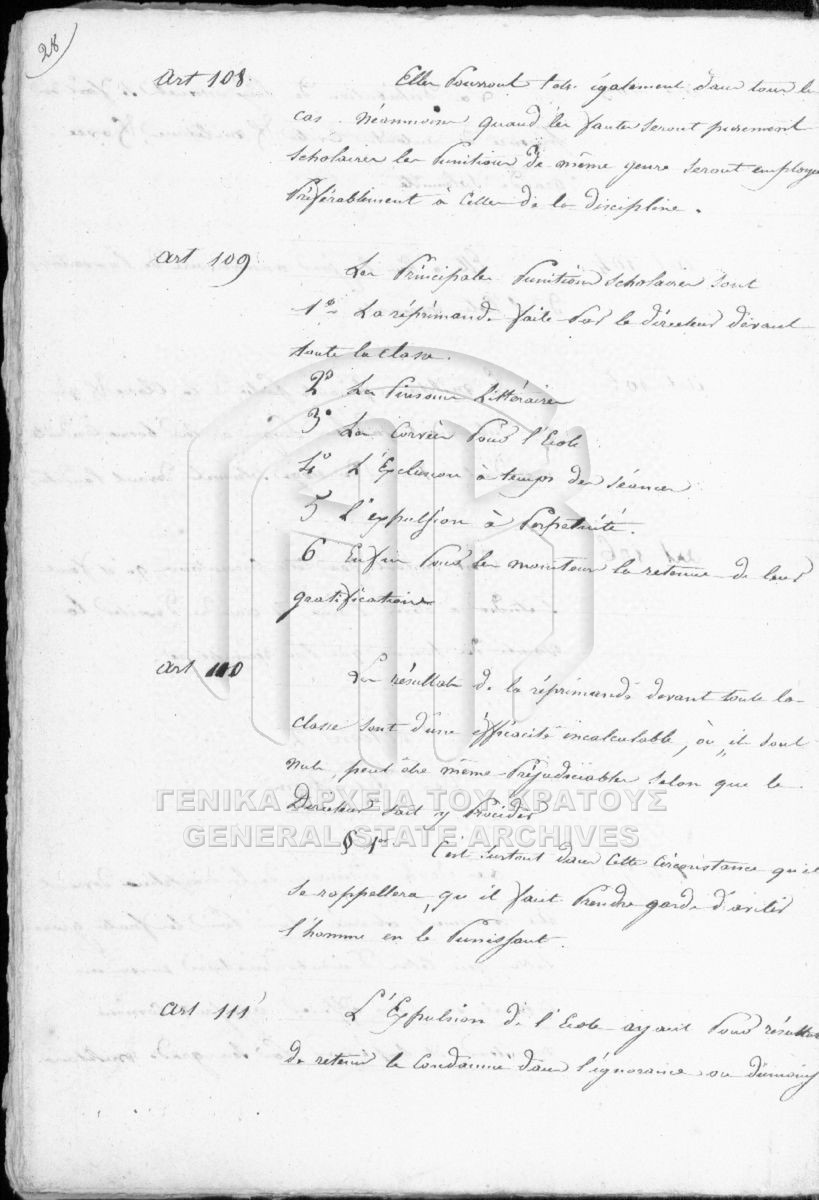 28
Art 108. Elles Pourront l'être également dans tous les
cas. Néanmoins quand les fautes seront purement
scholaires les Punitions de même genre seront employe
Préférablement à Celles de la discipline.
Art 109 Les Principales Punitions scholaires sont
1º La réprimande faite Par le directeur devant
toute la classe.
2º Les Pensums Littéraires
3º Les Corvées Pour l'Ecole
4º L'Exclusion à temps des séances
5 L'expulsion à Perpetuité.
6 Enfin Pour les moniteurs la retenue de leurs
gratifications
Art 110 Les résultats de la réprimande devant toute la
classe sont d'une éfficacité incalculable, où, ils sont
nuls, peut être même Préjudiciables selon que le
Directeur sait y Procéder
§ 1er C'est surtout dans Cette Circonstance qu'il
se rappellera, qu'il faut Prendre garde d'avilir
l'homme en le Punissant.
Art 111 L'Expulsion de l'Ecole ayant Pour résultat
de retenir le Condamné dans l'ignorance, ou dumoins
ΓΕΝΙΚΑ ΑΡΧΕΙΑ ΤΟΥ ΚΡΑΤΟΥΣ
GENERAL STATE ARCHIVES